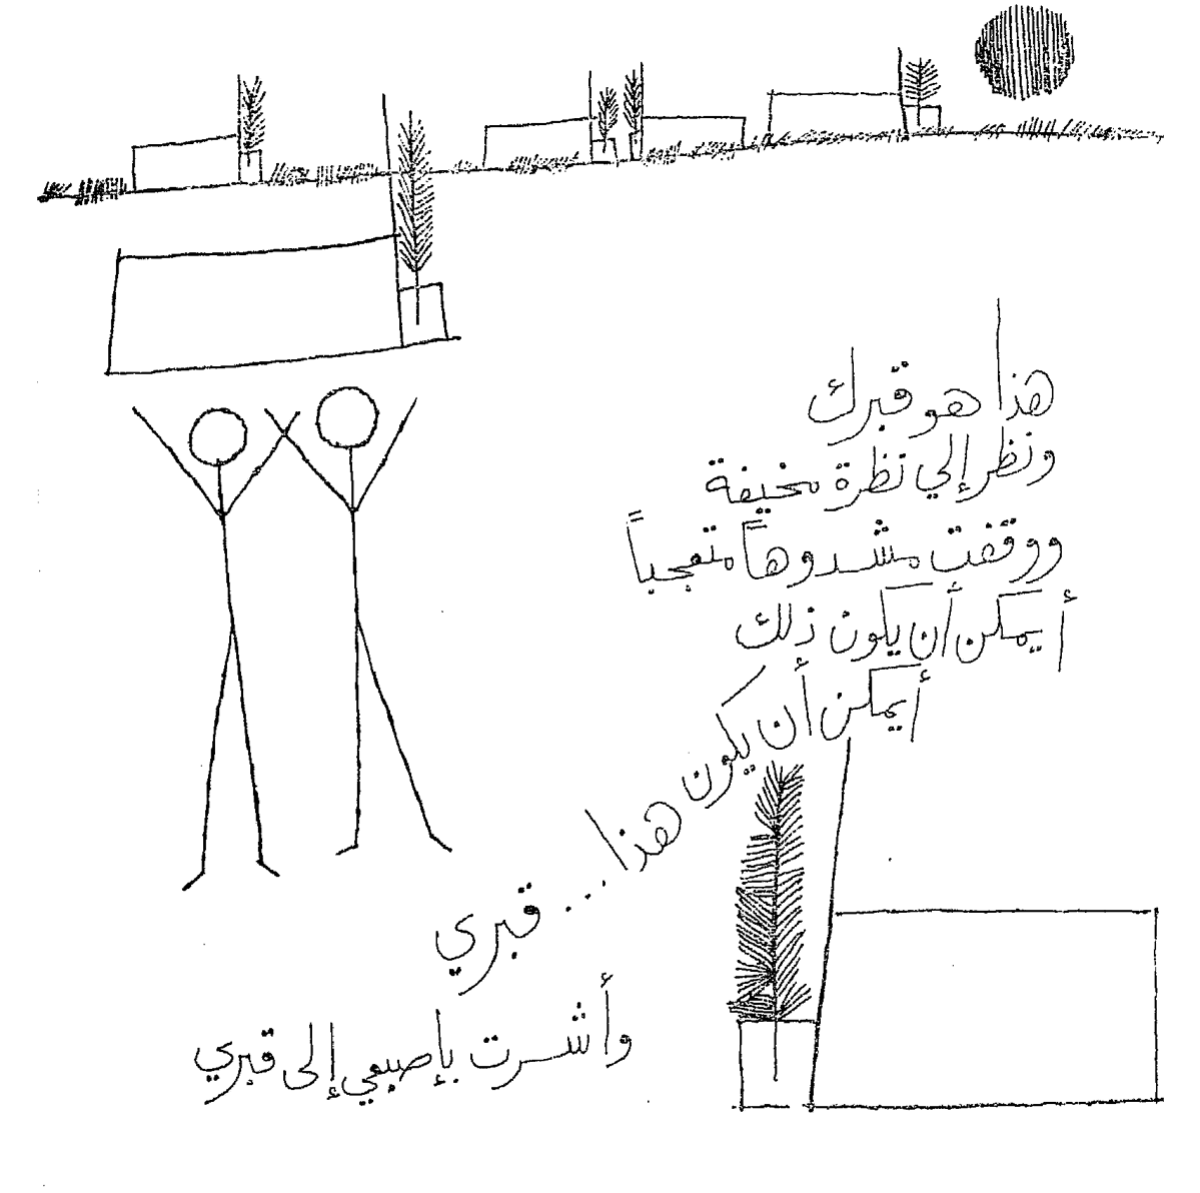 هذا هو قبرك
ونظر إلي نظرة مخيفة
ووقفت مشدوهاً متعجباً
أيمكن أن يكون ذلك
أيمكن أن يكون هذا... قبري
وأشرت بإصبعي إلى قبري